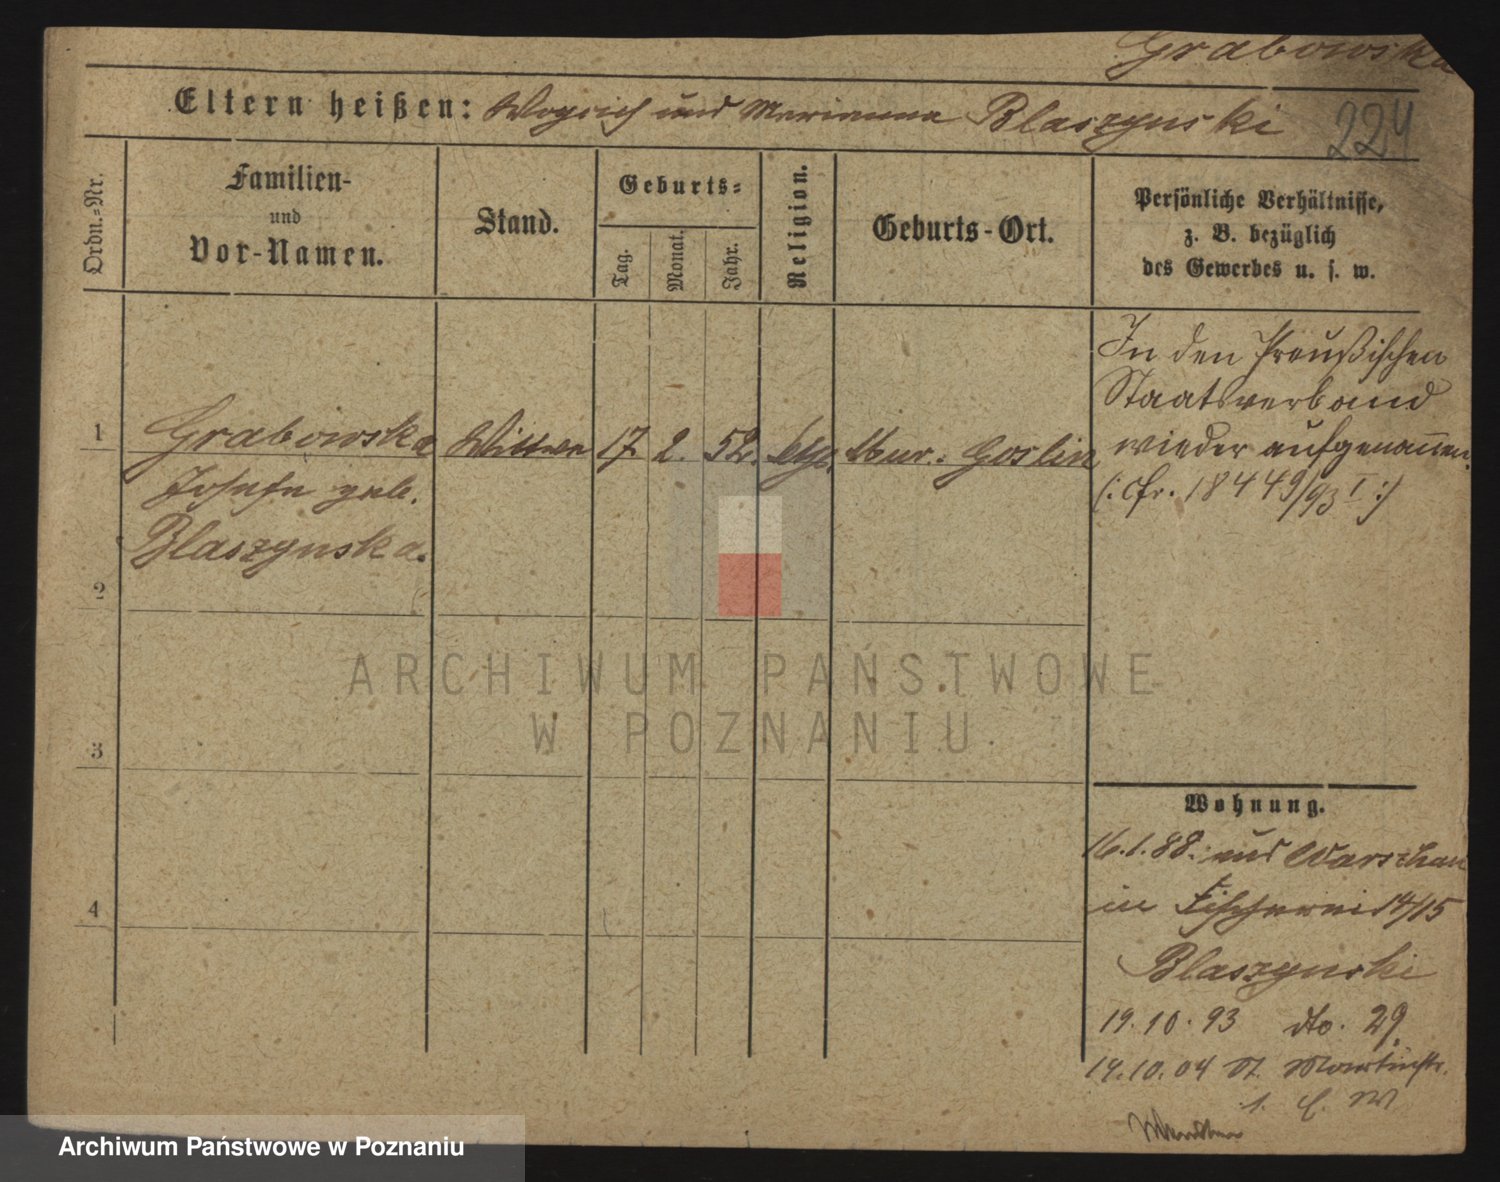 Grabowska
Eltern heißen: und Marianna Blaszynski
224
Ordn.=Nr.
Familien-
und
Vor-Namen.
Stand.
Geburts=
Tag.
Monat.
Jahr.
Religion.
Geburts-Ort.
Persönliche Verhältnisse,
z. B. bezüglich
des Gewerbes u. s. w.
1
Grabowska
Josefa geb.
Blaszynska.
Wittwe
17
2.
52.
Mur.- Goslin
In den Preußischen
Staatsverband
wieder aufgenom̄en.
(: cfr. 18449/93 I :)
2
3
4
Wohnung.
16.1.88. aus Warschau
in Fischerei 14/15
Blaszynski
19.10.93 dto. 29
14.10.04 St. Martinstr.
ARCHIWUM PAŃSTWOWE
W POZNANIU
Archiwum Państwowe w Poznaniu